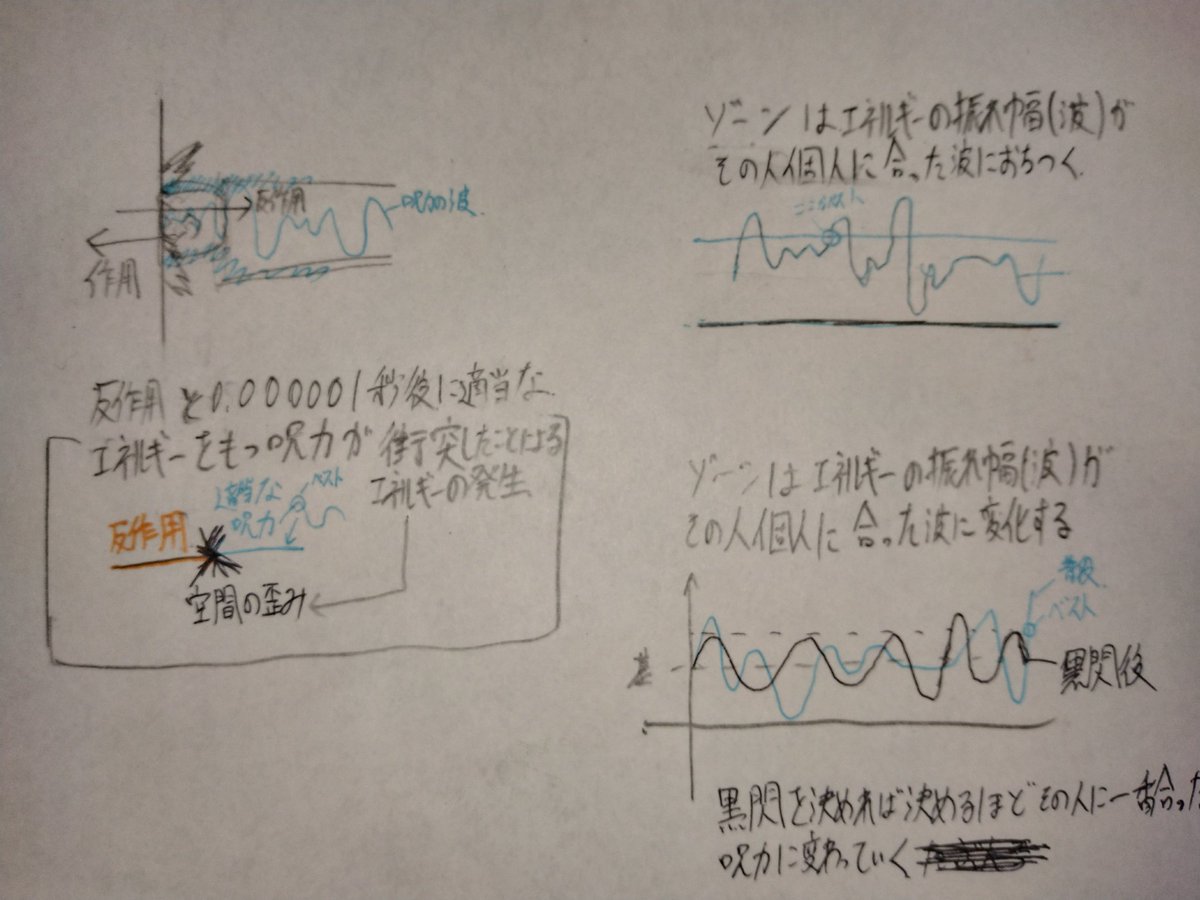 反作用
呪力の波
作用
反作用と0.000001秒後に適当な
エネルギーをもつ呪力が衝突したことによる
エネルギーの発生
適当な
呪力
ベスト
反作用
空間の歪み
ゾーンはエネルギーの振れ幅(波)が
その人個人に合った波におちつく
ゾーンはエネルギーの振れ幅(波)が
その人個人に合った波に変化する
普段
ベスト
基
黒閃後
黒閃を決めれば決めるほどその人に一番合った
呪力に変わっていく